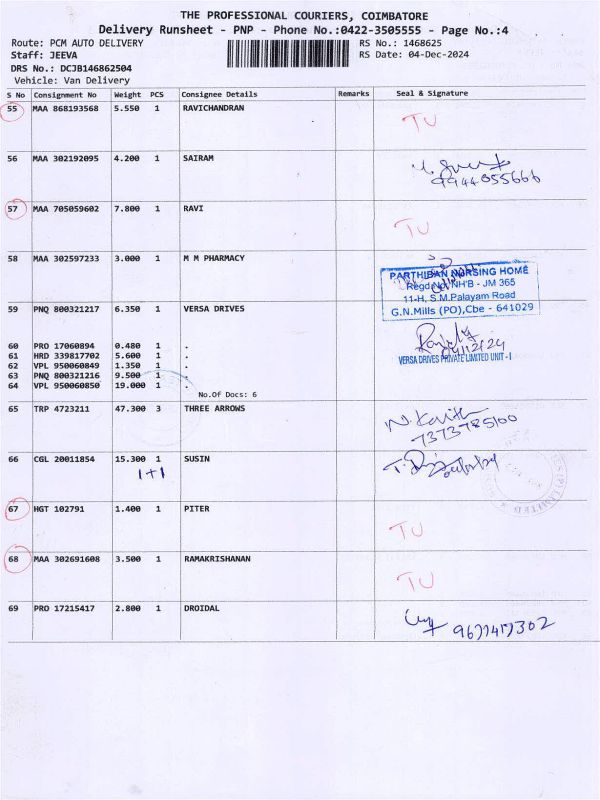 THE PROFESSIONAL COURIERS, COIMBATORE
Delivery Runsheet - PNP - Phone No.:0422-3505555 - Page No.:4
Route: PCM AUTO DELIVERY RS No.: 1468625
Staff: JEEVA RS Date: 04-Dec-2024
DRS No.: DCJB146862504
Vehicle: Van Delivery
S No Consignment No Weight PCS Consignee Details Remarks Seal & Signature
55 MAA 868193568 5.550 1 RAVICHANDRAN TU
56 MAA 302192095 4.200 1 SAIRAM
9944055666
57 MAA 705059602 7.800 1 RAVI TU
58 MAA 302597233 3.000 1 M M PHARMACY
PARTHIBAN NURSING HOME
Regd.No. NH'B - JM 365
11-H, S.M.Palayam Road
G.N.Mills (PO),Cbe - 641029
59 PNQ 800321217 6.350 1 VERSA DRIVES
60 PRO 17060894 0.480 1 .
04/12/24
61 HRD 339817702 5.600 1 .
VERSA DRIVES PRIVATE LIMITED UNIT - I
62 VPL 950060849 1.350 1 .
63 PNQ 800321216 9.500 1 .
64 VPL 950060850 19.000 1 .
No.Of Docs: 6
65 TRP 4723211 47.300 3 THREE ARROWS
N. Kavith
7373785100
66 CGL 20011854 15.300 1 SUSIN
1+1
67 HGT 102791 1.400 1 PITER TU
68 MAA 302691608 3.500 1 RAMAKRISHANAN TU
69 PRO 17215417 2.800 1 DROIDAL